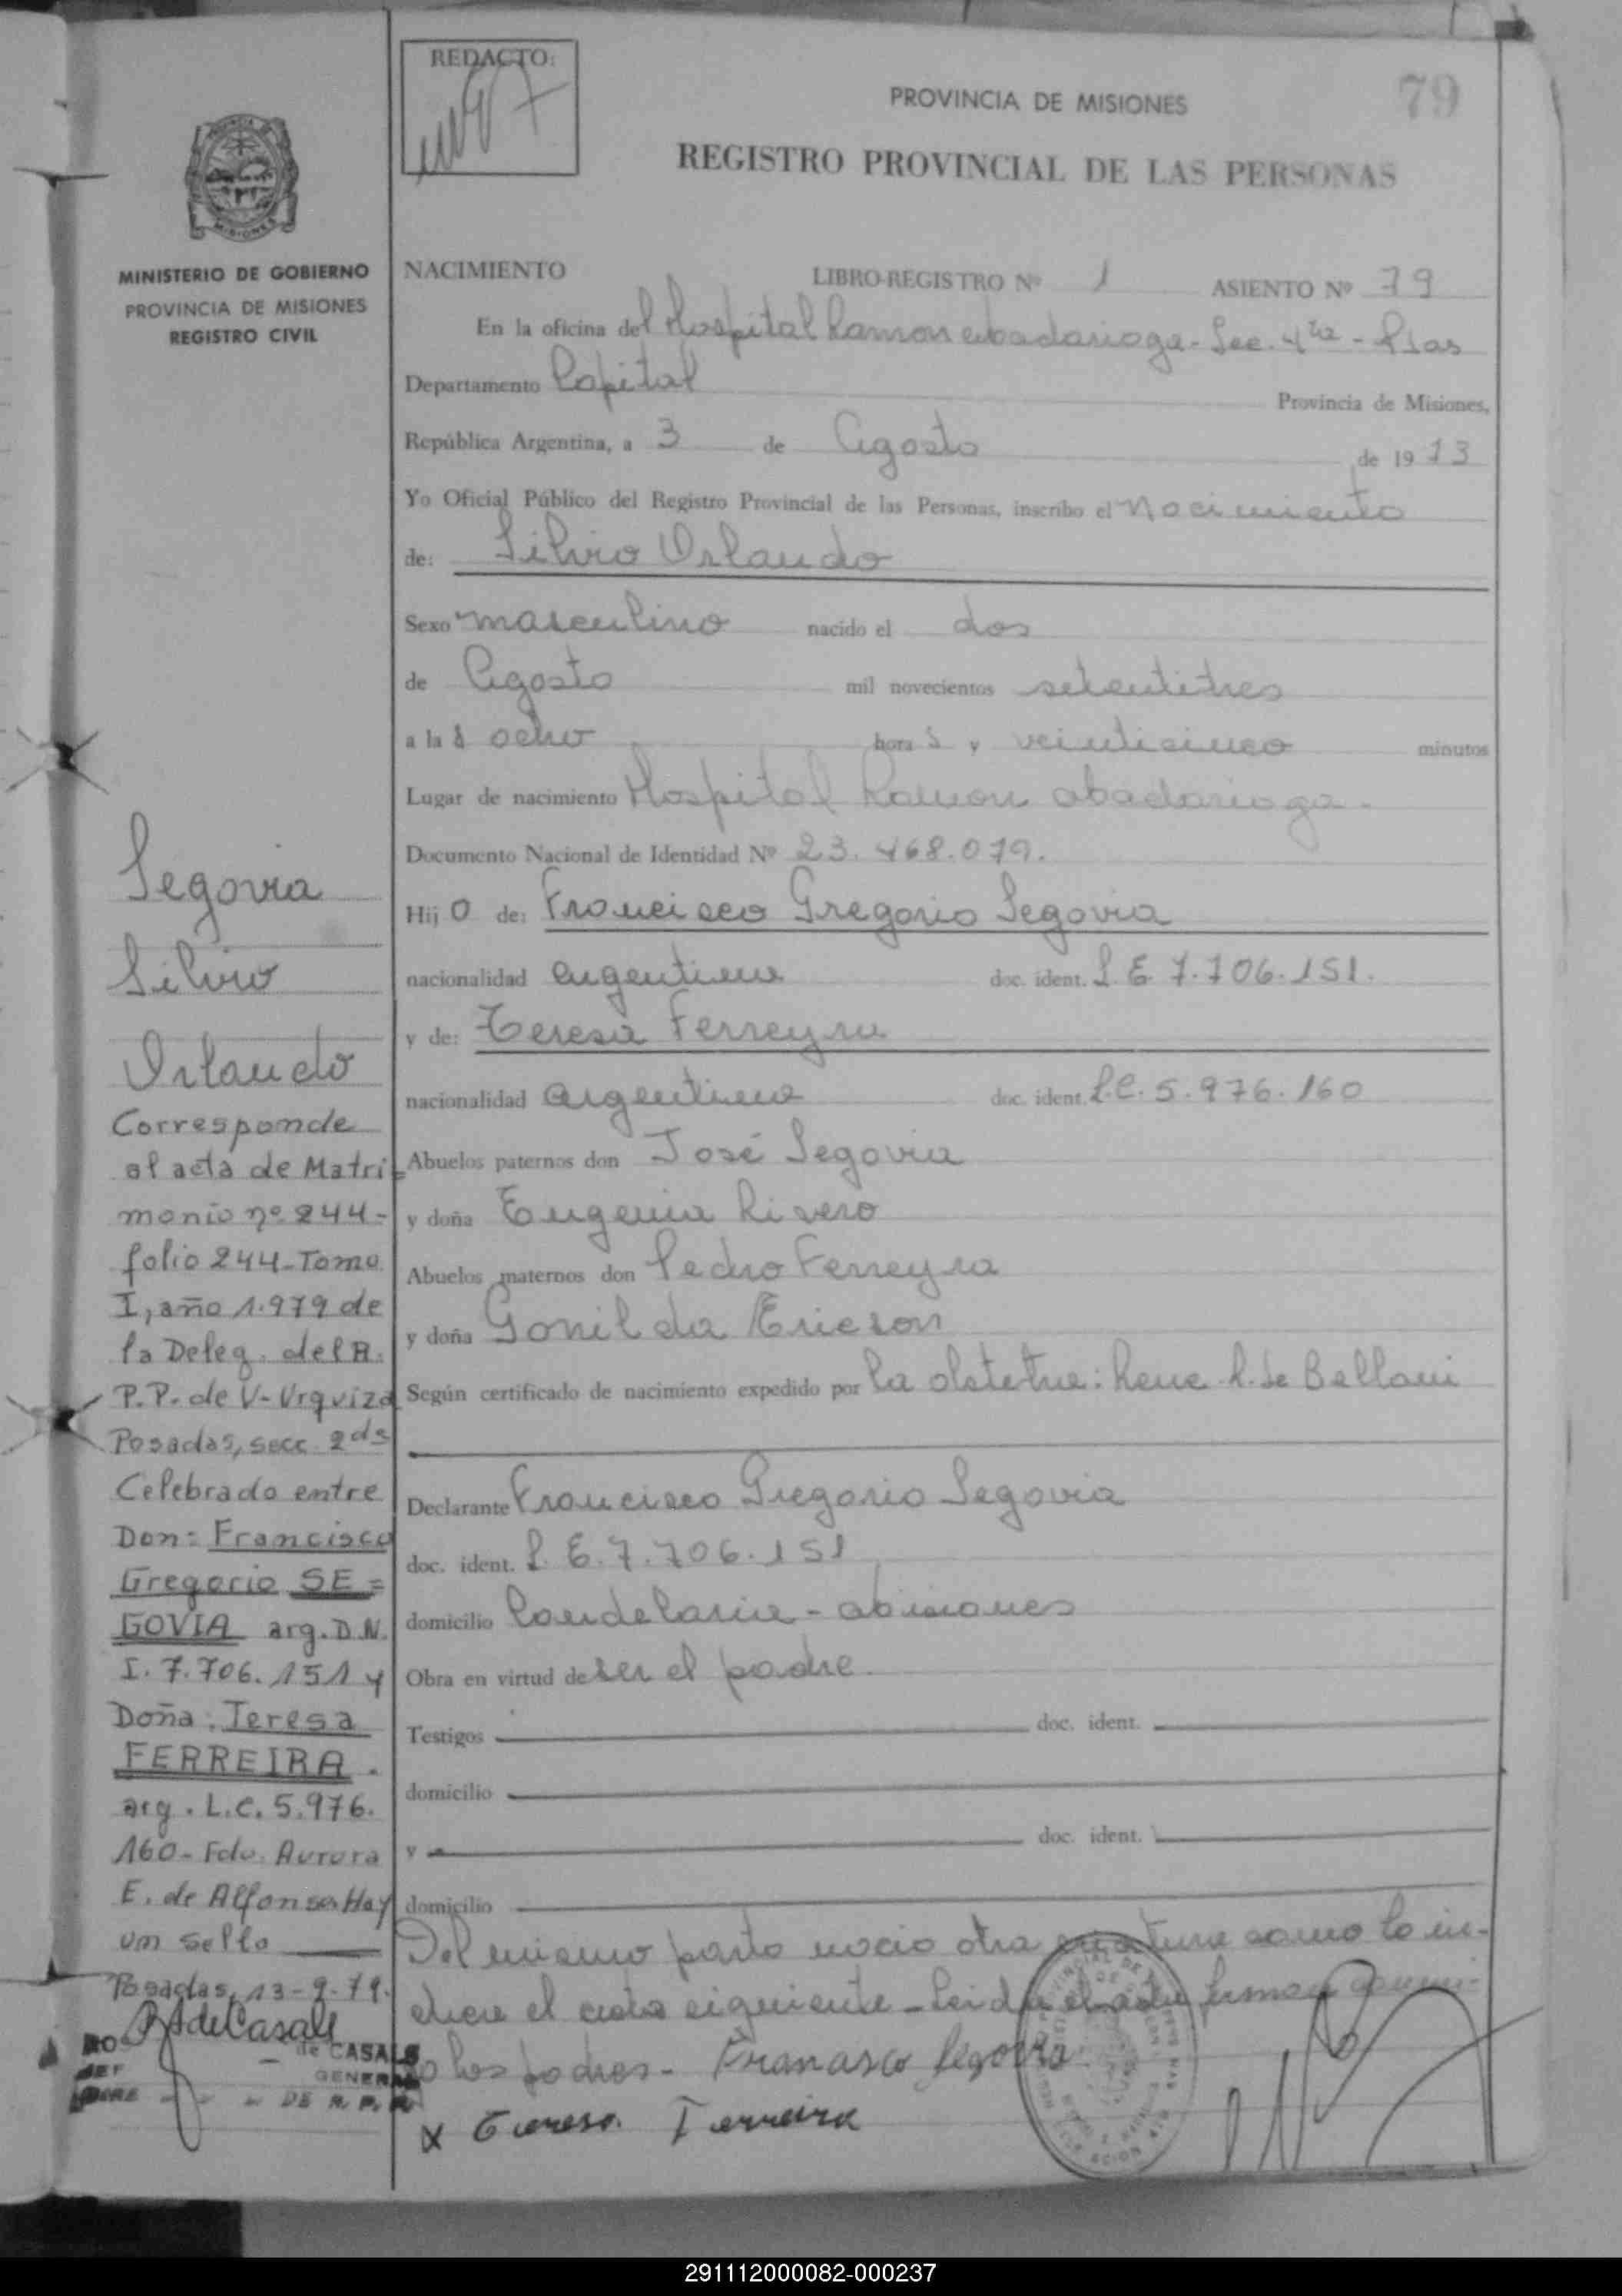 REDACTO:
79
PROVINCIA DE MISIONES
REGISTRO PROVINCIAL DE LAS PERSONAS
MINISTERIO DE GOBIERNO
PROVINCIA DE MISIONES
REGISTRO CIVIL
NACIMIENTO LIBRO-REGISTRO Nº 1 ASIENTO Nº 79
En la oficina del Hospital Ramon abadarioga - Sec. 4ta - Psas
Departamento Capital Provincia de Misiones,
República Argentina, a 3 de Agosto de 1973
Yo Oficial Público del Registro Provincial de las Personas, inscribo el Nacimiento
de: Silvio Orlando
Sexo masculino nacido el dos
de Agosto mil novecientos setentitres
a las ocho horas y veinticinco minutos
Lugar de nacimiento Hospital Ramon abadarioga -
Documento Nacional de Identidad Nº 23.468.079.
Hijo de: Francisco Gregorio Segovia
nacionalidad argentina doc. ident. L.E 7.706.151.
y de: Teresa Ferreyra
nacionalidad argentina doc. ident. L.C. 5.976.160
Abuelos paternos don José Segovia
y doña Eugenia Rivero
Abuelos maternos don Pedro Ferreyra
y doña Gonilda Ericson
Según certificado de nacimiento expedido por la obstetra: Rene R. de Bellani
Declarante Francisco Gregorio Segovia
doc. ident. L.E. 7.706.151
domicilio Candelaria - Misiones
Obra en virtud de ser el padre.
Testigos doc. ident.
domicilio
y doc. ident.
domicilio
Del mismo parto nacio otra criatura como lo in-
dica el acta siguiente - Leida el acta firman conmi-
go los padres - Francisco Segovia
x Teresa Ferreira
Segovia
Silvio
Orlando
Corresponde
al acta de Matri=
monio nº 244-
folio 244-Tomo
I, año 1.979 de
la Deleg. del R.
P.P. de V-Urquiza
Posadas, secc. 2da
Celebrado entre
Don: Francisco
Gregorio SE=
GOVIA arg. D.N.
I. 7.706.151 y
Doña: Teresa
FERREIRA.
arg. L.C. 5.976.
160- Fdo. Aurora
E. de Alfonso Hay
un sello
Posadas, 13-9-79.
de CASALE
GENERAL
DE R. P. P.
291112000082-000237